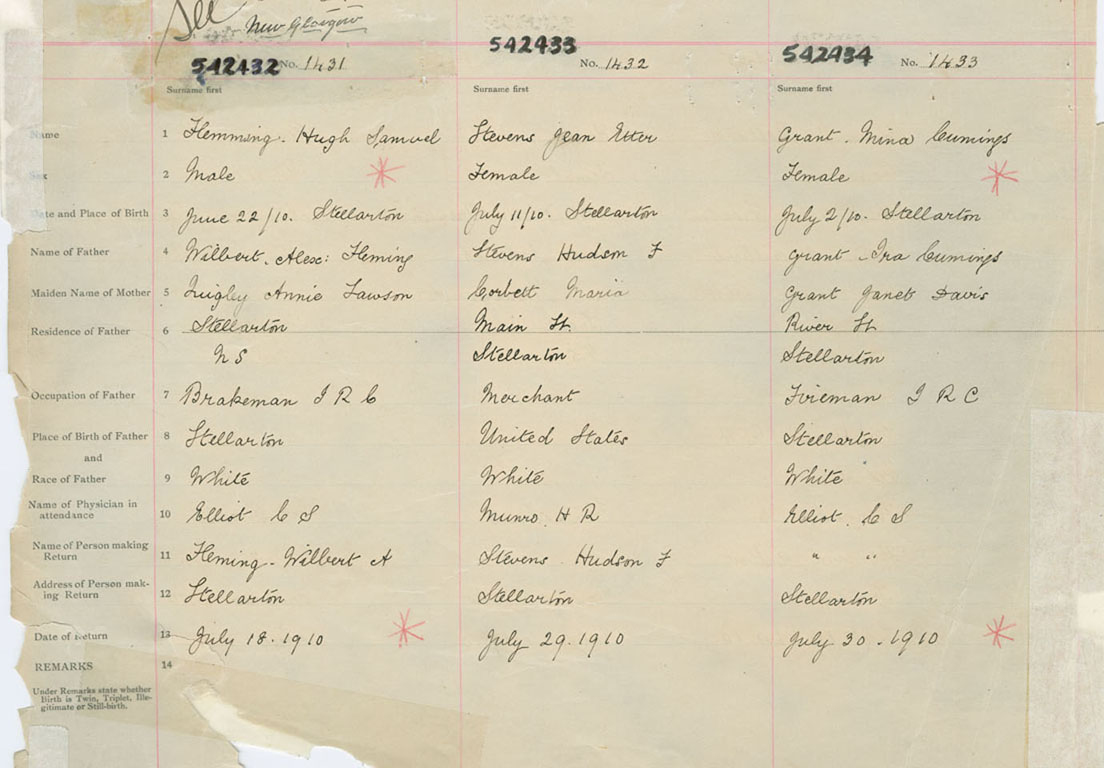 See
New Glasgow
542432 No. 1431 542433 No. 1432 542434 No. 1433
Surname first Surname first Surname first
Name 1 Flemming. Hugh Samuel Stevens Jean Etter Grant. Mina Cumings
Sex 2 Male Female Female
Date and Place of Birth 3 June 22/10. Stellarton July 11/10. Stellarton July 2/10. Stellarton
Name of Father 4 Wilbert. Alex: Fleming Stevens Hudson F Grant Ira Cumings
Maiden Name of Mother 5 Annie Lawson Corbett Maria Grant Janet Davis
Residence of Father 6 Stellarton Main St. River St.
N S Stellarton Stellarton
Occupation of Father 7 Brakeman I R C Merchant Fireman I R C
Place of Birth of Father 8 Stellarton United States Stellarton
and
Race of Father 9 White White White
Name of Physician in
attendance 10 Elliot C S Munro. H R Elliot. C S
Name of Person making
Return 11 Fleming - Wilbert A Stevens Hudson F " "
Address of Person mak-
ing Return 12 Stellarton Stellarton Stellarton
Date of Return 13 July 18. 1910 July 29. 1910 July 30 - 1910
REMARKS 14
Under Remarks state whether
Birth is Twin, Triplet, Ille-
gitimate or Still-birth.